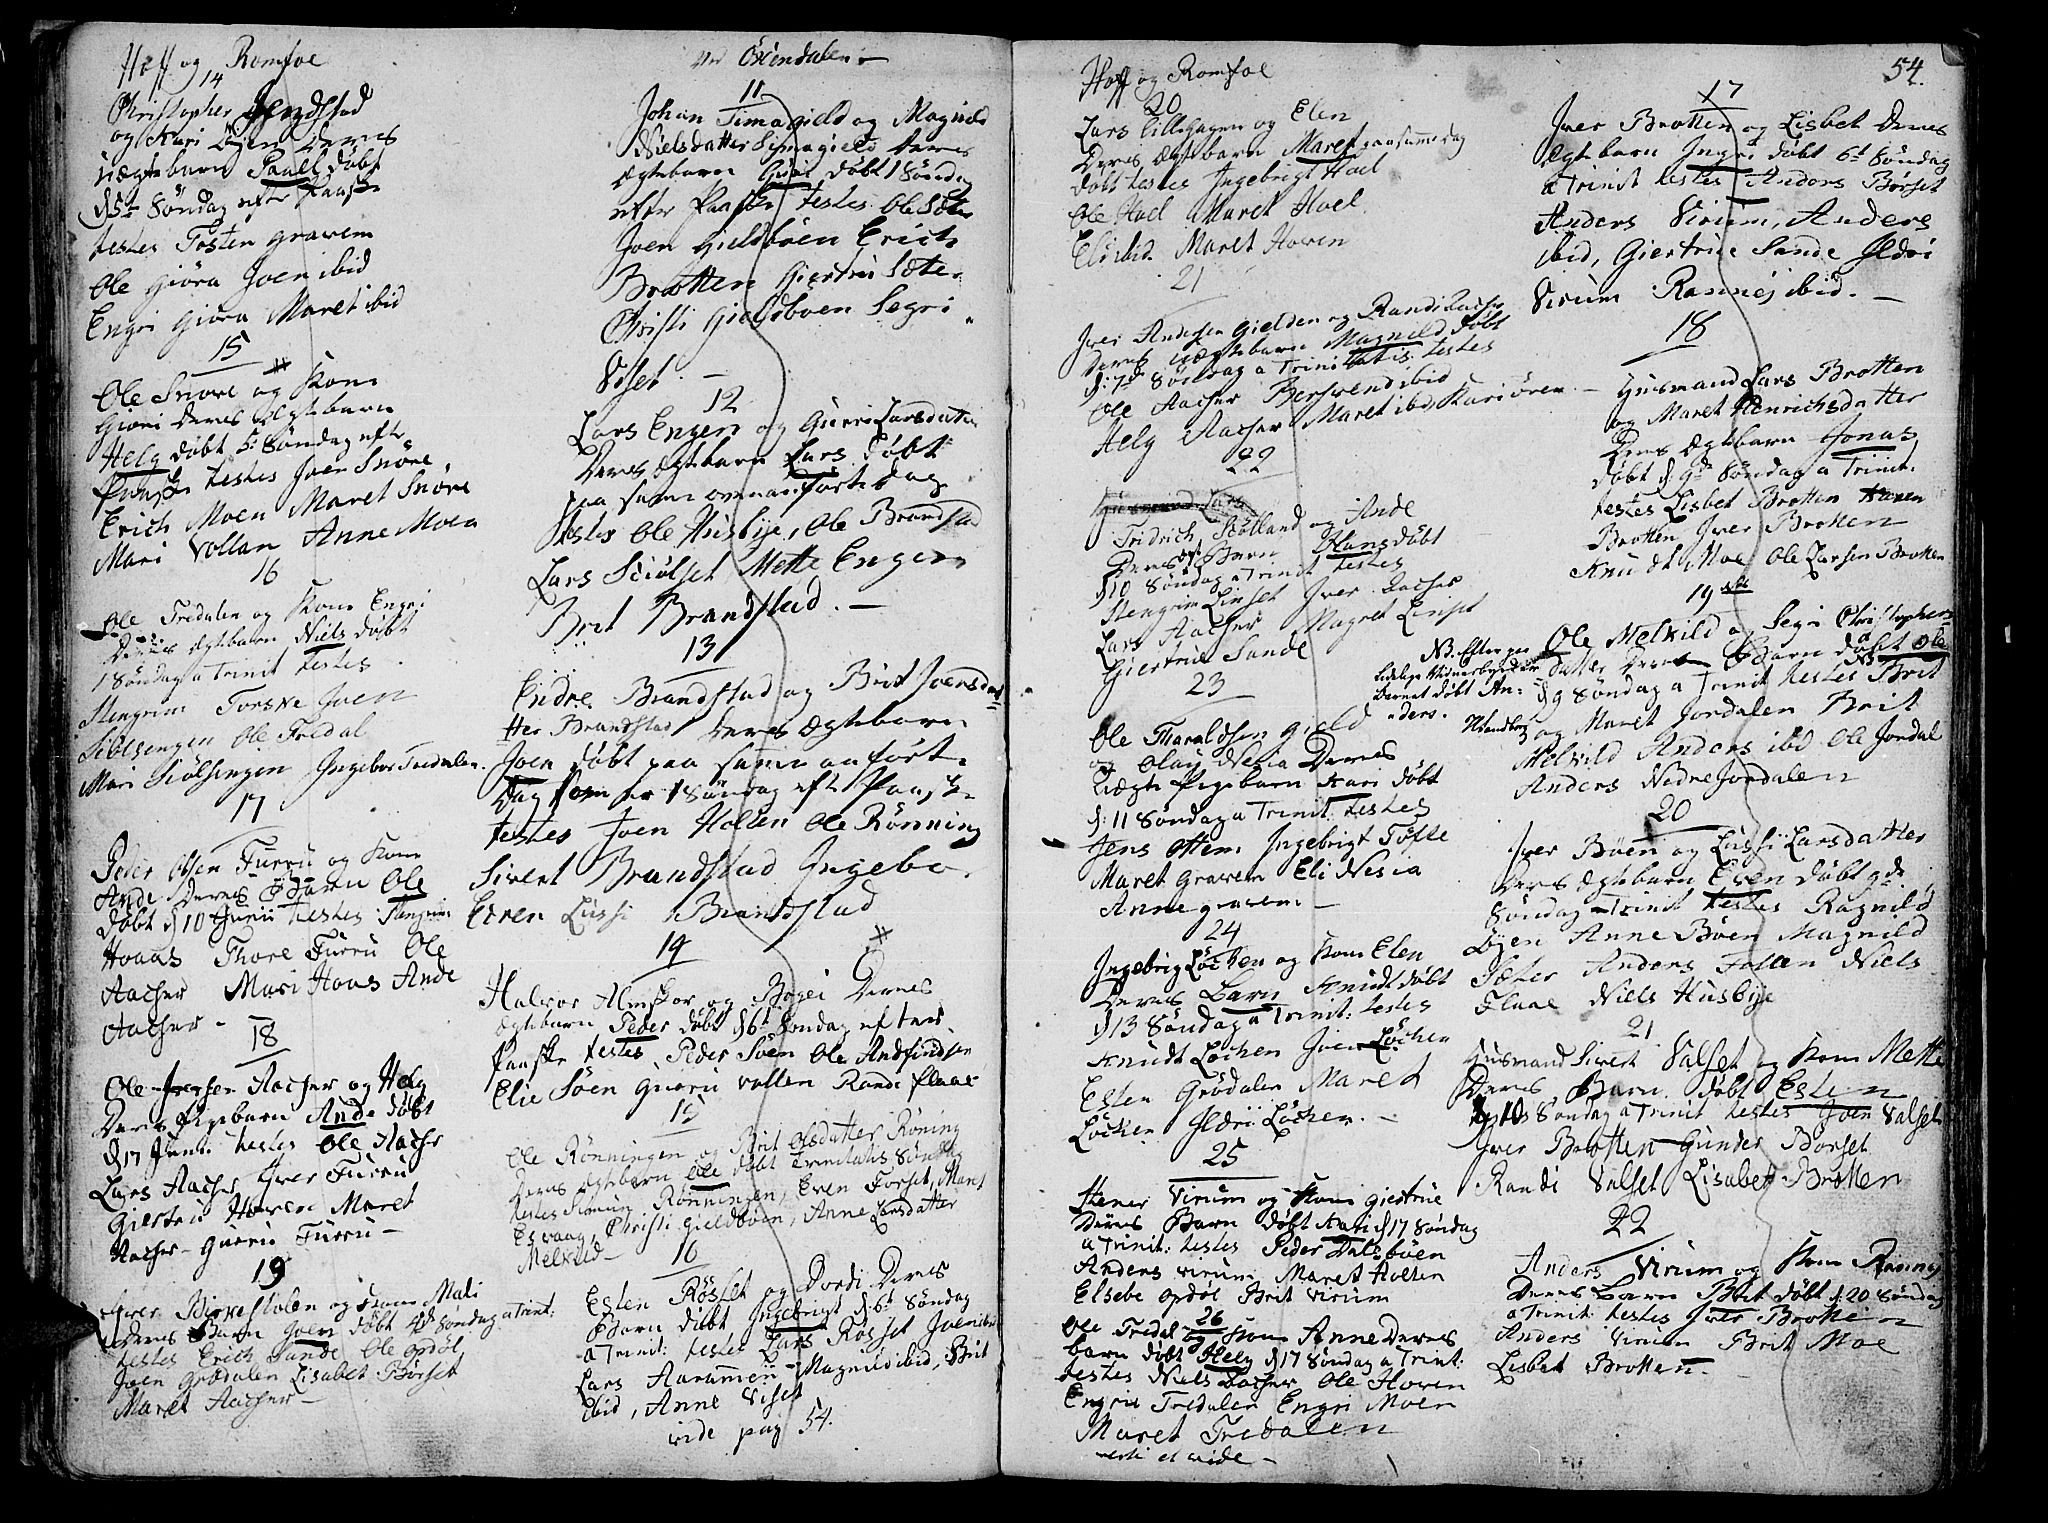 Hoff og Romfoe
14
Christopher
og Kari Øyen Deres
uægte barn Paall døbt
d 5te Søndag efter Paaske
testes Tosten Gravem
Ole Giöra Joen ibid
Engri Giöra Maret ibid
15
Ole Snøve og Kone
Giöri Deres Ægtebarn
Helg døbt 5te Søndag efter
Paaske testes Iver Snöve
Erich Moen Maret Snöve
Mari Vollan Anne Moen
16
Ole Tredalen og Kone Engri
Deres Ægtebarn Niels døbt
1 Søndag a Trinit testes
Stengrim Torske Joen
Siölsengen Ole Tredal
Mari Siölsengen Ingebor Tredalen
17
Peder Olsen Furru og Kone
Ande Deres Barn Ole
døbt d 10 Junii testes Stengrim
Hoaas Thore Furru Ole
Aacher Mari Hoas Ande
Aacher -
18
Ole Iversen Aacher og Helg
Deres Pigebarn Ande døbt
d 17 Juni: testes Ole Aacher
Lars Aacher Iver Furru
Giertru Hoven Maret
Aacher - Gurru Furru -
19
Iver Birkestolen og Kone Mali
Deres Barn Joen døbt 4de Søndag a Trint:
testes Erich Sande Ole Opdøl
Joen Grødalen Lisabet Börset
Maret Aacher -
ved Öxendalen -
11
Johan Simagield og Magnild
Nielsdatter Simagield Deres
Ægtebarn Guri døbt 1 Søndag
efter Paaske testes Ole Sæter
Joen Gielsböen Erich
Brotten Giertru Sæter
Christi Gielsboen Segri
Viset. -
12
Lars Engen og Gurru Larsdatter
Deres Ægtebarn Lars døbt
paa samme ommanførte dag
testes Ole Husbye, Ole Brandstad
Lars Sciölset Mette Engen
Brit Brandstad. -
13
Endre Brandstad og Brit Joensdat=
ter Brandstad Deres Ægtebarn
Joen døbt paa samme anført.
Dag som er 1 Søndag eft Paaske
testes Joen Holten Ole Rönning
Sivert Brandstad Ingebo.
Even Lussi Brandstad
14
Halvor Almskor og Bøgei Deres
Ægtebarn Peder døbt d 6te Søndag efter
Paaske testes Peder Söen Ole Andfindsen
Elie Söen Gurru Vollen Rande Flaae
15
Ole Rönningen og Brit Olsdatter Röning
Deres Ægtebarn Ole døbt Trinitatis Søndag
testes Simun Rönningen, Even Forset, Mons
Esvaag, Christi Gieldböen, Anne Larsdatter
Melkild -
16
Esten Röset og Dordi Deres
Barn døbt Ingebrigt d: 6te Søndag
a Trinit: testes Lars Rösset Joen ibid
Lars Haramen Magnild ibid, Brit
ibid, Anne Viset
vide pag 54.
Hoff og Romfoe
20
Lars Lillehagen og Elen
Deres Ægtebarn Maret paa samme dag
døbt testes Ingebrigt Hoel
Ole Hoel Maret Hoel
Eli ibid Maret Hoven
21
Iver Andersen Gielden og Randi Aacher
Deres uægtebarn Magnild døbt
d: 7de Søndag a Trinitatis testes
Ole Aacher Bersvend ibid
Helg Aacher Maret ibid Kari Ören -
22
Fridrich Støtland og Ande
Deres ægt Barn Hans døbt
d 10 Søndag a Trinit testes
Stengrim Linset Iver Aacher
Lars Aacher Magret Linset
Giertrue Sande
23
Ole Tharaldsen Gield
og Olay Nesia Deres
uægte Pigebarn Kari døbt
d: 11 Søndag a Trinit: testes
Jens Ottem Ingebrigt Tofte
Maret Gravem Eli Nesia
Anne Gravem -
24
Ingebrig Löchen og Kone Elen
Deres Barn Knudt døbt
d 13 Søndag a Trinit: testes
Knudt Løchen Iver Löchen
Esten Grödalen Maret
Löchen Ildri Löchen. -
25
Stener Virum og Kone Giertrue
Deres Barn døbt Kari d 17 Søndag
a Trinit: testes Peder Dalsböen
Anders Virum Maret Holten
Elsebe Opdöl Brit Virum
26
Ole Tredal og Kone Anne Deres
barn døbt Helg d 17 Søndag a Trint:
testes Niels Aacher Ole Hoven
Engri Tredalen Engri Moen
Maret Tredalen
verte et vide -
54.
17
Iver Brotten og Lisbet Deres
Ægtebarn Ingri døbt 6te Søndag
a Trinit testes Anders Børset
Anders Virum, Anders
ibid, Giertrue Sande Ildri
Virum Rannei ibid. -
18
Husmand Lars Brotten
og Maret Henrichsdatter
Deres Ægtebarn Jonas
døbt d 9de Søndag a Trinit.
testes Lisbet Brotten Karen
Brotten Iver Brotten
Knudt Moe Ole Larsen Brotten
19
Ole Melkild og Segri Christophers
datter Deres Barn døbt Ole
d 9 Søndag a Trinit testes Brit
og Maret Jordalen Brit
Melkild Anders ibid Ole Jordal
Anders Nedre Jordalen
NB. Efter paa
lidelige Vidnesbyrd er
Barnet døbt An=
ders.
20
Iver Böen og Lussi Larsdatter
Deres Ægtebarn Even døbt 9de
Søndag Trinit testes Ragnild
Öyen Anne Böen Magnild
Sæter Anders Follen Niels
Flaae Niels Husbye
21
Husmand Sivert Valset og Kone Mette
Deres Barn døbt Esten
d 10 Søndag a Trinit testes Joen Valset
Iver Brotten Gunder Borset
Randi Valset Lisabet Brotten
22
Anders Virum og Kone Ranney
Deres Barn Brit døbt d: 20 Søndag
a Trinit: testes Iver Brotten
Anders Virum Brit Moe
Lisbet Brotten. -